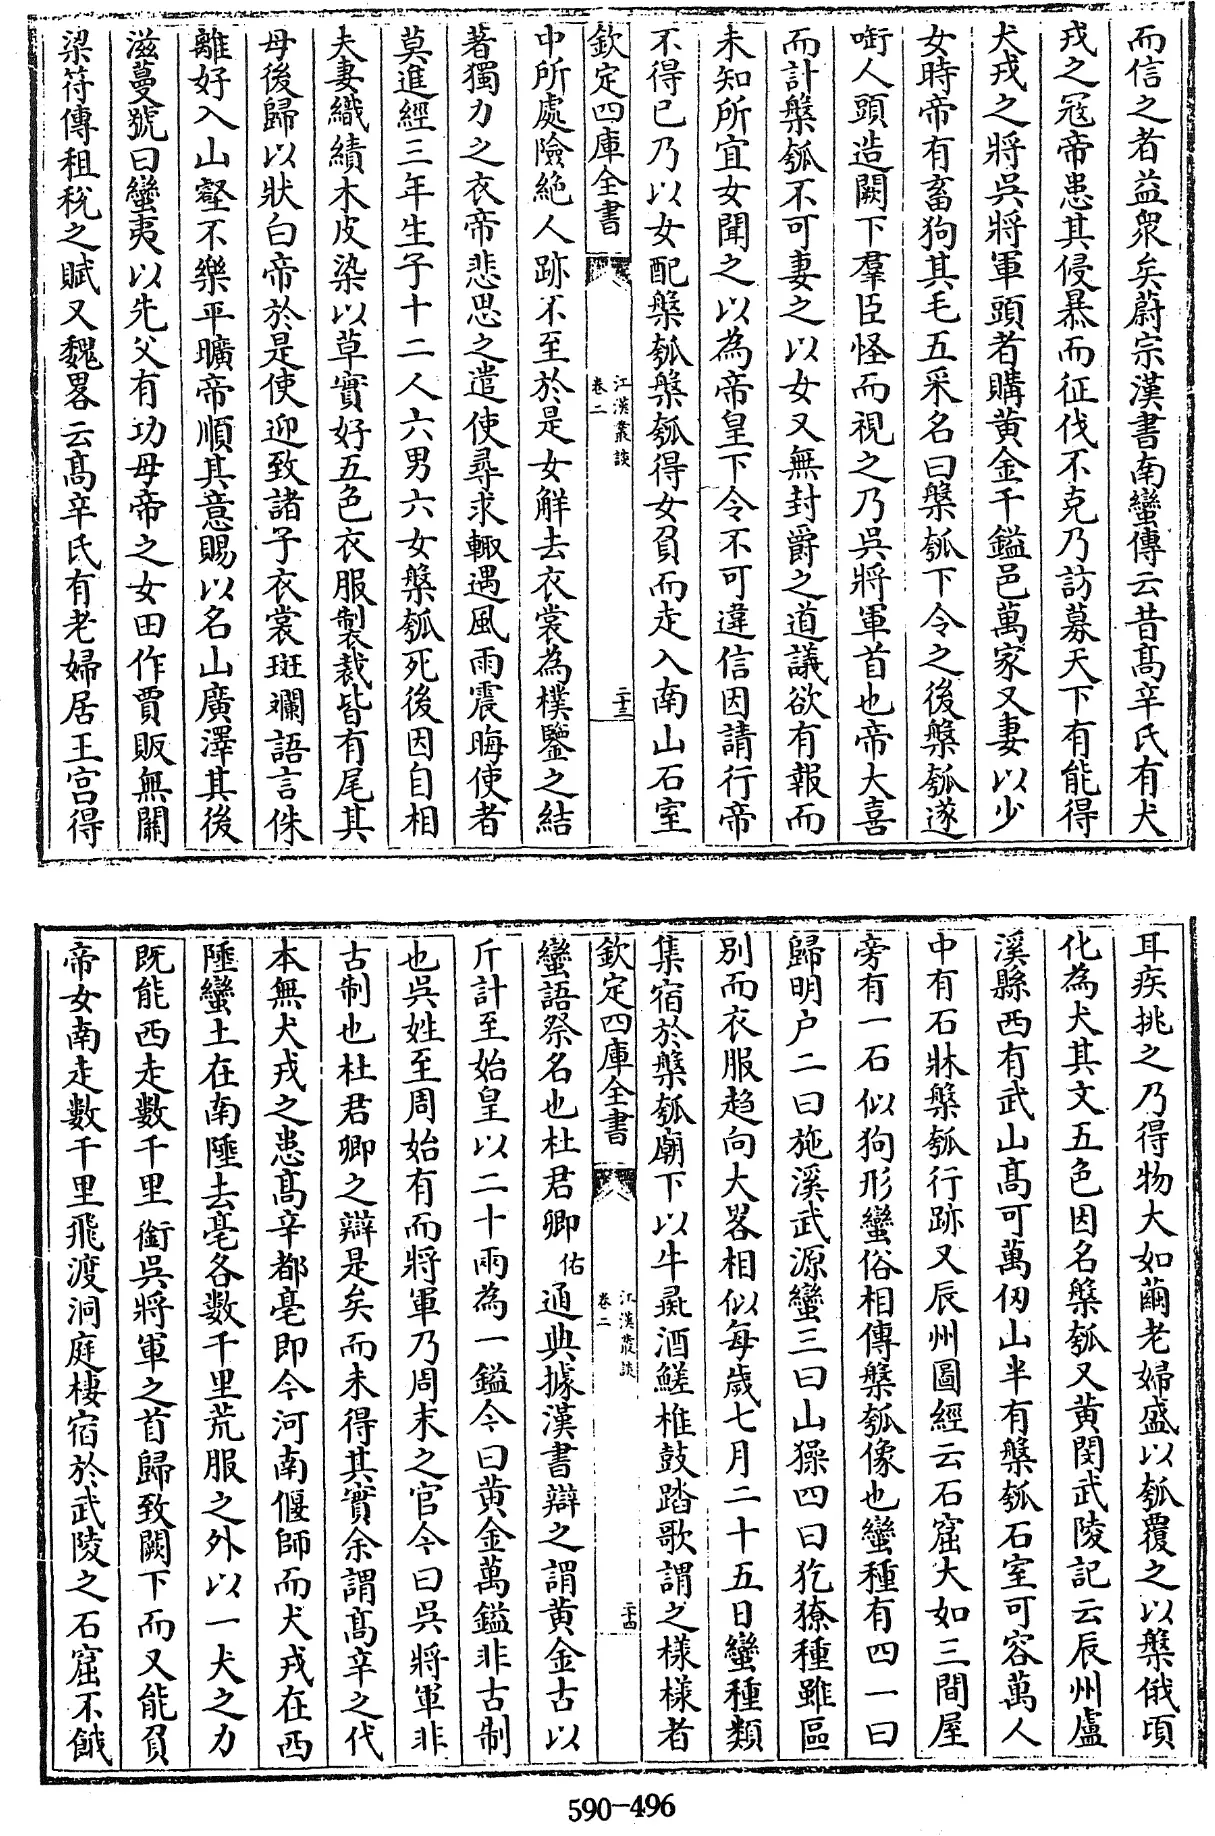 而信之者益衆矣蔚宗漢書南蠻傳云昔髙辛氏有犬
戎之冦帝患其侵暴而征伐不克乃訪募天下有能得
犬戎之將吳將軍頭者購黄金千鎰邑萬家又妻以少
女時帝有畜狗其毛五采名曰槃瓠下令之後槃瓠遂
㗸人頭造闕下羣臣怪而視之乃吳將軍首也帝大喜
而計槃瓠不可妻之以女又無封爵之道議欲有報而
未知所宜女聞之以為帝皇下令不可違信因請行帝
不得已乃以女配槃瓠槃瓠得女負而走入南山石室
欽定四庫全書
江漢叢談
卷二
二十三
中所處險絶人跡不至於是女解去衣裳為樸鑒之結
著獨力之衣帝悲思之遣使尋求輙遇風雨震晦使者
莫進經三年生子十二人六男六女槃瓠死後因自相
夫妻織績木皮染以草實好五色衣服製裁皆有尾其
母後歸以狀白帝於是使迎致諸子衣裳斑斕語言侏
離好入山壑不樂平曠帝順其意賜以名山廣澤其後
滋蔓號曰蠻夷以先父有功母帝之女田作賈販無關
梁符傳租稅之賦又魏畧云髙辛氏有老婦居王宫得
耳疾挑之乃得物大如繭老婦盛以瓠覆之以槃俄頃
化為犬其文五色因名槃瓠又黄閔武陵記云辰州盧
溪縣西有武山髙可萬仭山半有槃瓠石室可容萬人
中有石牀槃瓠行跡又辰州圖經云石窟大如三間屋
旁有一石似狗形蠻俗相傳槃瓠像也蠻種有四一曰
歸明户二曰施溪武源蠻三曰山獠四曰犵獠種雖區
別而衣服趋向大畧相似每歲七月二十五日蠻種類
集宿於槃瓠廟下以牛彘酒鮺椎鼓踏歌謂之樣樣者
欽定四庫全書
江漢叢談
卷二
二十四
蠻語祭名也杜君卿佑通典據漢書辯之謂黄金古以
斤計至始皇以二十兩為一鎰今曰黄金萬鎰非古制
也吳姓至周始有而將軍乃周末之官今曰吳將軍非
古制也杜君卿之辯是矣而未得其實余謂髙辛之代
本無犬戎之患髙辛都亳即今河南偃師而犬戎在西
陲蠻土在南陲去亳各數千里荒服之外以一犬之力
既能西走數千里銜吳將軍之首歸致闕下而又能負
帝女南走數千里飛渡洞庭棲宿於武陵之石窟不餓
590-496